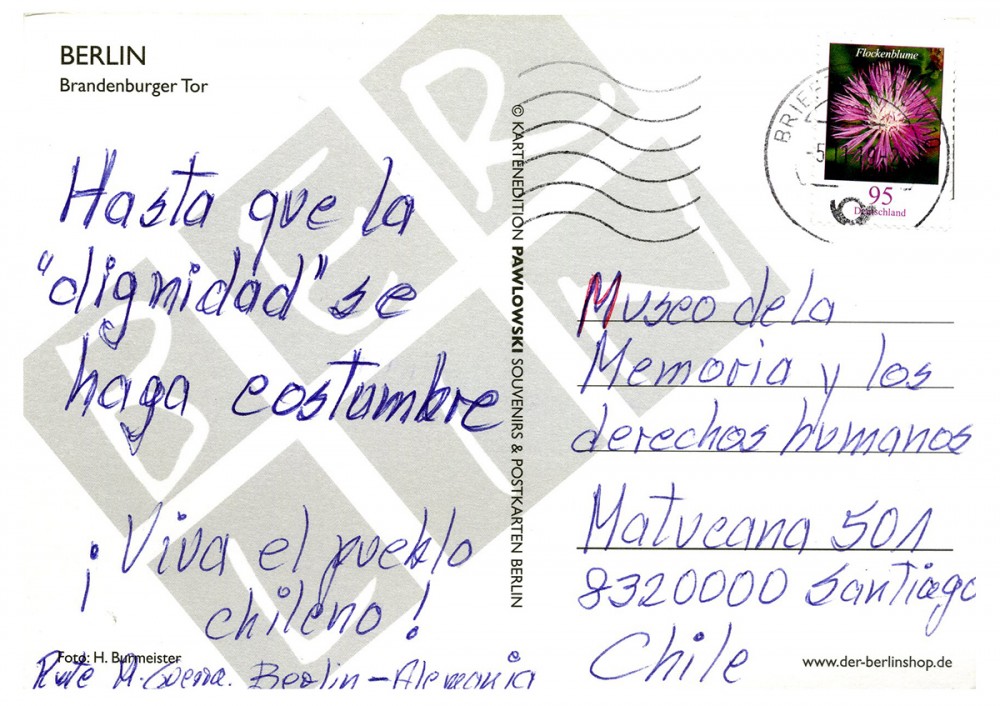 BERLIN
Brandenburger Tor
Hasta que la
"dignidad" se
haga costumbre
¡Viva el pueblo
chileno!
Foto: H. Burmeister
Berlin - Alemania
© KARTENEDITION PAWLOWSKI SOUVENIRS & POSTKARTEN BERLIN
BERLIN
Flockenblume
95
Deutschland
Museo de la
Memoria y los
derechos humanos
Matucana 501
8320000 Santiago
Chile
www.der-berlinshop.de